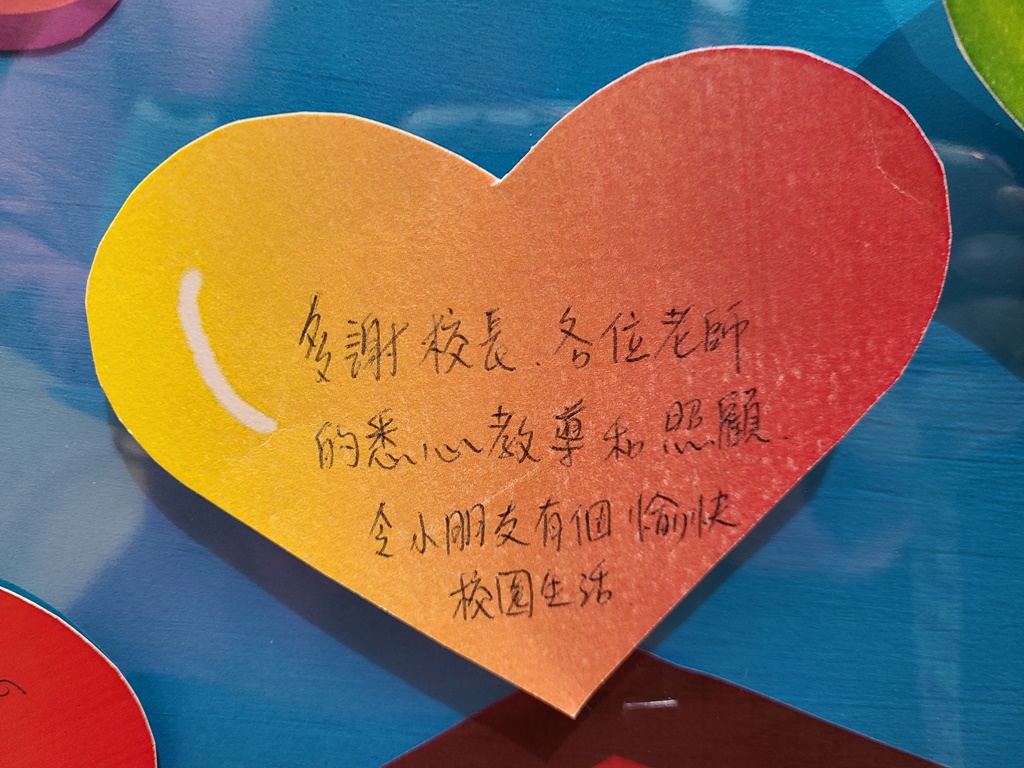 多謝校長、各位老師
的悉心教導和照顧.
令小朋友有個愉快
校園生活